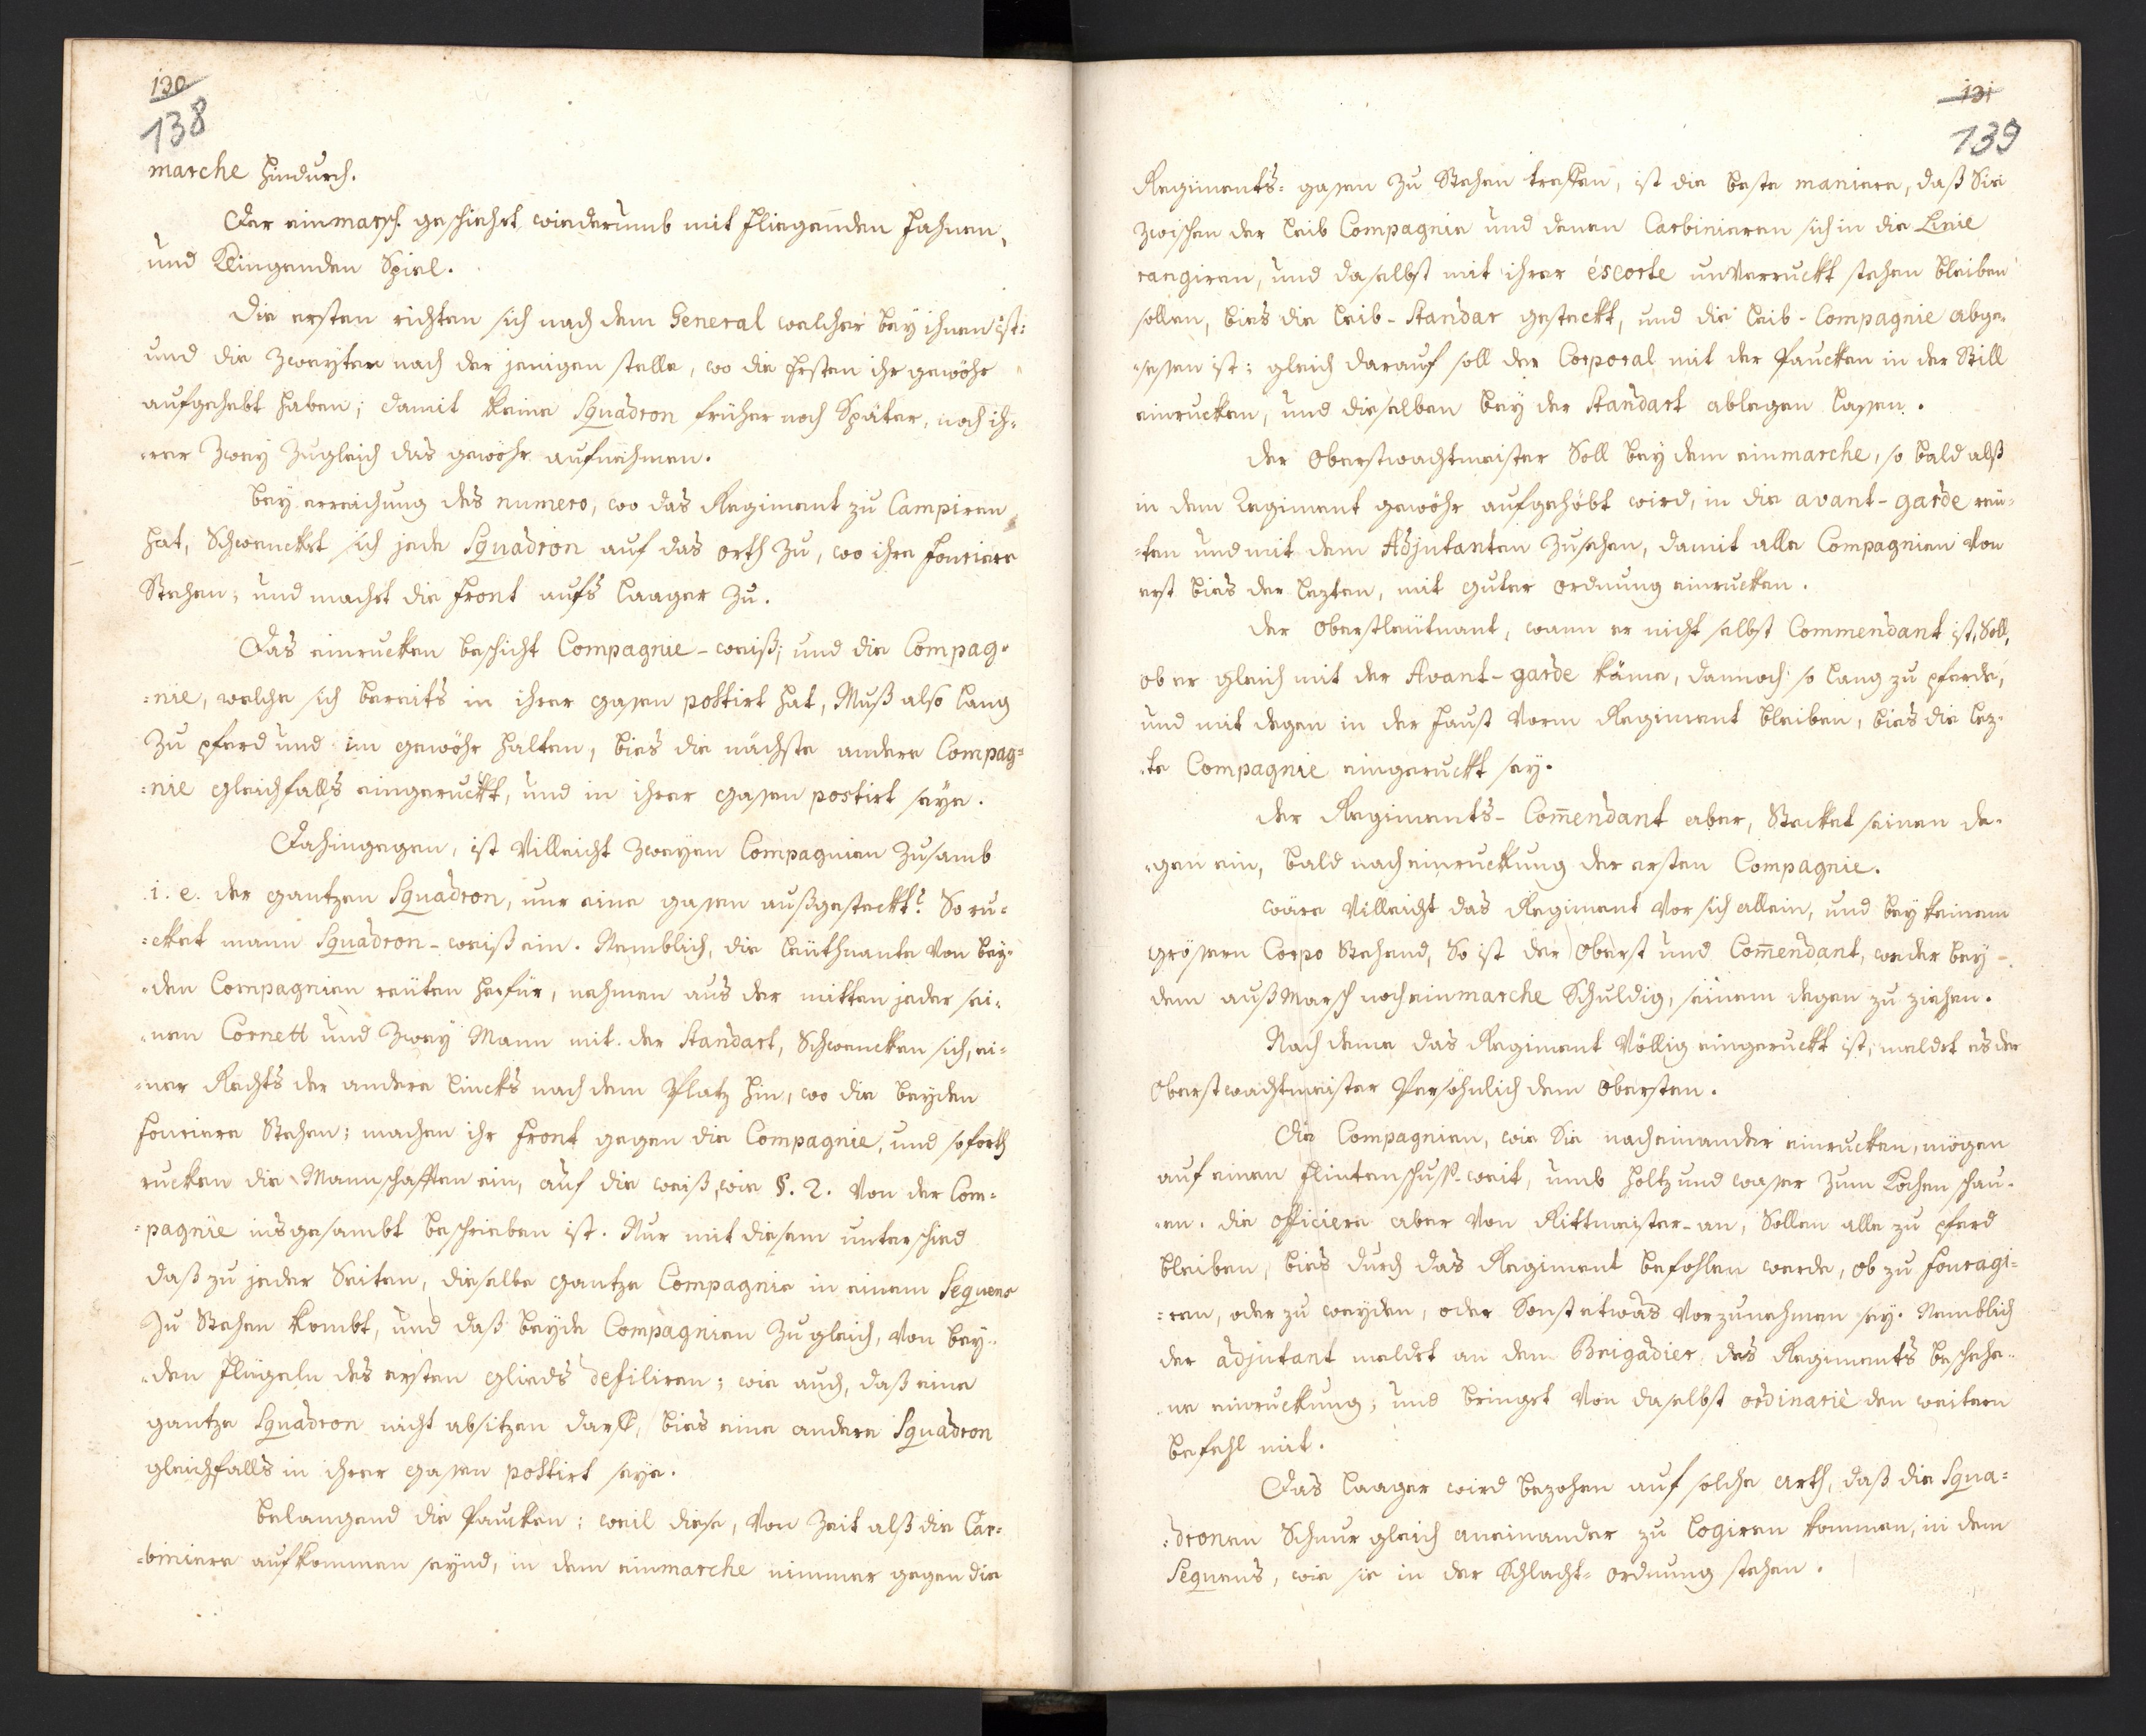 130
138
marche hindurch.
Der einmarsch geschiehet wiederumb mit fliegenden Fahnen,
und Klingenden Spiel.
Die ersten richten sich nach dem General welcher bey ihnen ist:
und die zweyten nach der jenigen stelle, wo die Ersten ihr gewöhr
aufgehebt haben; damit keine Squadron früher noch Später, noch ih=
=rer Zwey zugleich das gewöhr aufnehmen.
Bey erreichung des numero, wo das Regiment zu Campiren
hat, Schwencket sich jede Squadron auf das orth zu, wo ihre Fouriere
Stehen; und machet die Front aufs Laager zu.
Das einrucken beschicht Compagnie-weiß; und die Compag=
=nie, welche sich bereits in ihrer gassen postirt hat, Muß also lang
zu pferd und im gewöhr halten, bies die nächste andere Compag=
=nie gleichfalls eingeruckt, und in ihrer gassen postirt seye.
Dahingegen, ist Villeicht zweyen Compagnien zusamb
i. e. der gantzen Squadron, nur eine gassen außgesteckt? So ru=
=cket mann Squadron-weiß ein. Nemblich, die Leuthnante von bey=
=den Compagnien reuten herfür, nehmen aus der mitten jeder sei=
=nen Cornett und Zwey Mann mit der Standart, Schwencken sich, ei=
=ner Rechts der andere Lincks nach dem Platz hin, wo die beyden
Fouriere Stehen; machen ihr Front gegen die Compagnie, und soforth
rucken die Mannschafften ein, auf die weiß, wie §. 2. Von der Com=
=pagnie insgesambt beschrieben ist. Nur mit diesem unterschied
daß zu jeder Seiten, dieselbe gantze Compagnie in einem Sequens
zu Stehen kombt, und daß beyde Compagnien zugleich, von bey=
=den Flügeln des ersten glieds defiliren; wie auch, daß eine
gantze Squadron nicht absitzen darff, bies eine andere Squadron
gleichfalls in ihrer gassen postirt seye.
Belangend die Paucken: weil diese, von Zeit alß die Car=
=biniere aufkommen seynd, in dem einmarche nimmer gegen die
131
139
Regiments= gassen zu Stehen treffen, ist die beste maniere, daß Sie
zwischen der Leib Compagnie und denen Carbinieren sich in die Linie
rangiren, und daselbst mit ihrer éscorte unverruckt stehen bleiben
sollen, bies die Leib-Standar gesteckt, und die Leib-Compagnie abge=
=sessen ist; gleich darauf soll der Corporal mit der Paucken in der Still
einrucken, und dieselben bey der Standart ablegen lassen.
Der Oberstwachtmeister Soll bey dem einmarche, so bald alß
in dem Regiment gewöhr aufgehöbt wird, in die avant-garde reu=
=ten und mit dem Adjutanten zusehen, damit alle Compagnien von
erst bies der lezten, mit guter ordnung einrucken.
Der Oberstleutnant, wann er nicht selbst Commendant ist, Soll,
ob er gleich mit der Avant-garde käme, dannoch so lang zu pferde,
und mit degen in der Faust vorm Regiment bleiben, bies die lez=
=te Compagnie eingeruckt sey.
Der Regiments-Com̄endant aber, Stecket seinen de=
=gen ein, bald nach einruckung der ersten Compagnie.
Wäre Villeicht das Regiment vor sich allein, und bey keinem
grössern Corpo Stehend, So ist der Oberst und Com̄endant, weder bey
dem außMarsch noch einmarche Schuldig, seinem degen zu ziehen.
Nach deme das Regiment Völlig eingeruckt ist, meldet es der
Oberstwachtmeister Persöhnlich dem Obersten.
Die Compagnien, wie Sie nacheinander einrucken, mögen
auf einen Flintenschuss-weit, umb holtz und wasser zum Kochen schau=
=en. Die officiere aber von Rittmeister-an, Sollen alle zu pferd
bleiben, bies durch das Regiment befohlen werde, ob zu fouragi=
=ren, oder zu weyden, oder Sonst etwas vorzunehmen sey. Nemblich
der adjutant meldet an dem Brigadier, des Regiments beschehe=
=ne einruckung; und bringet von daselbst ordinarie den weitern
befehl mit.
Das Laager wird bezohen auf solche arth, daß die Squa=
=dronen Schnur gleich aneinander zu logiren kommen, in dem
Sequens, wie sie in der Schlacht= ordnung stehen.